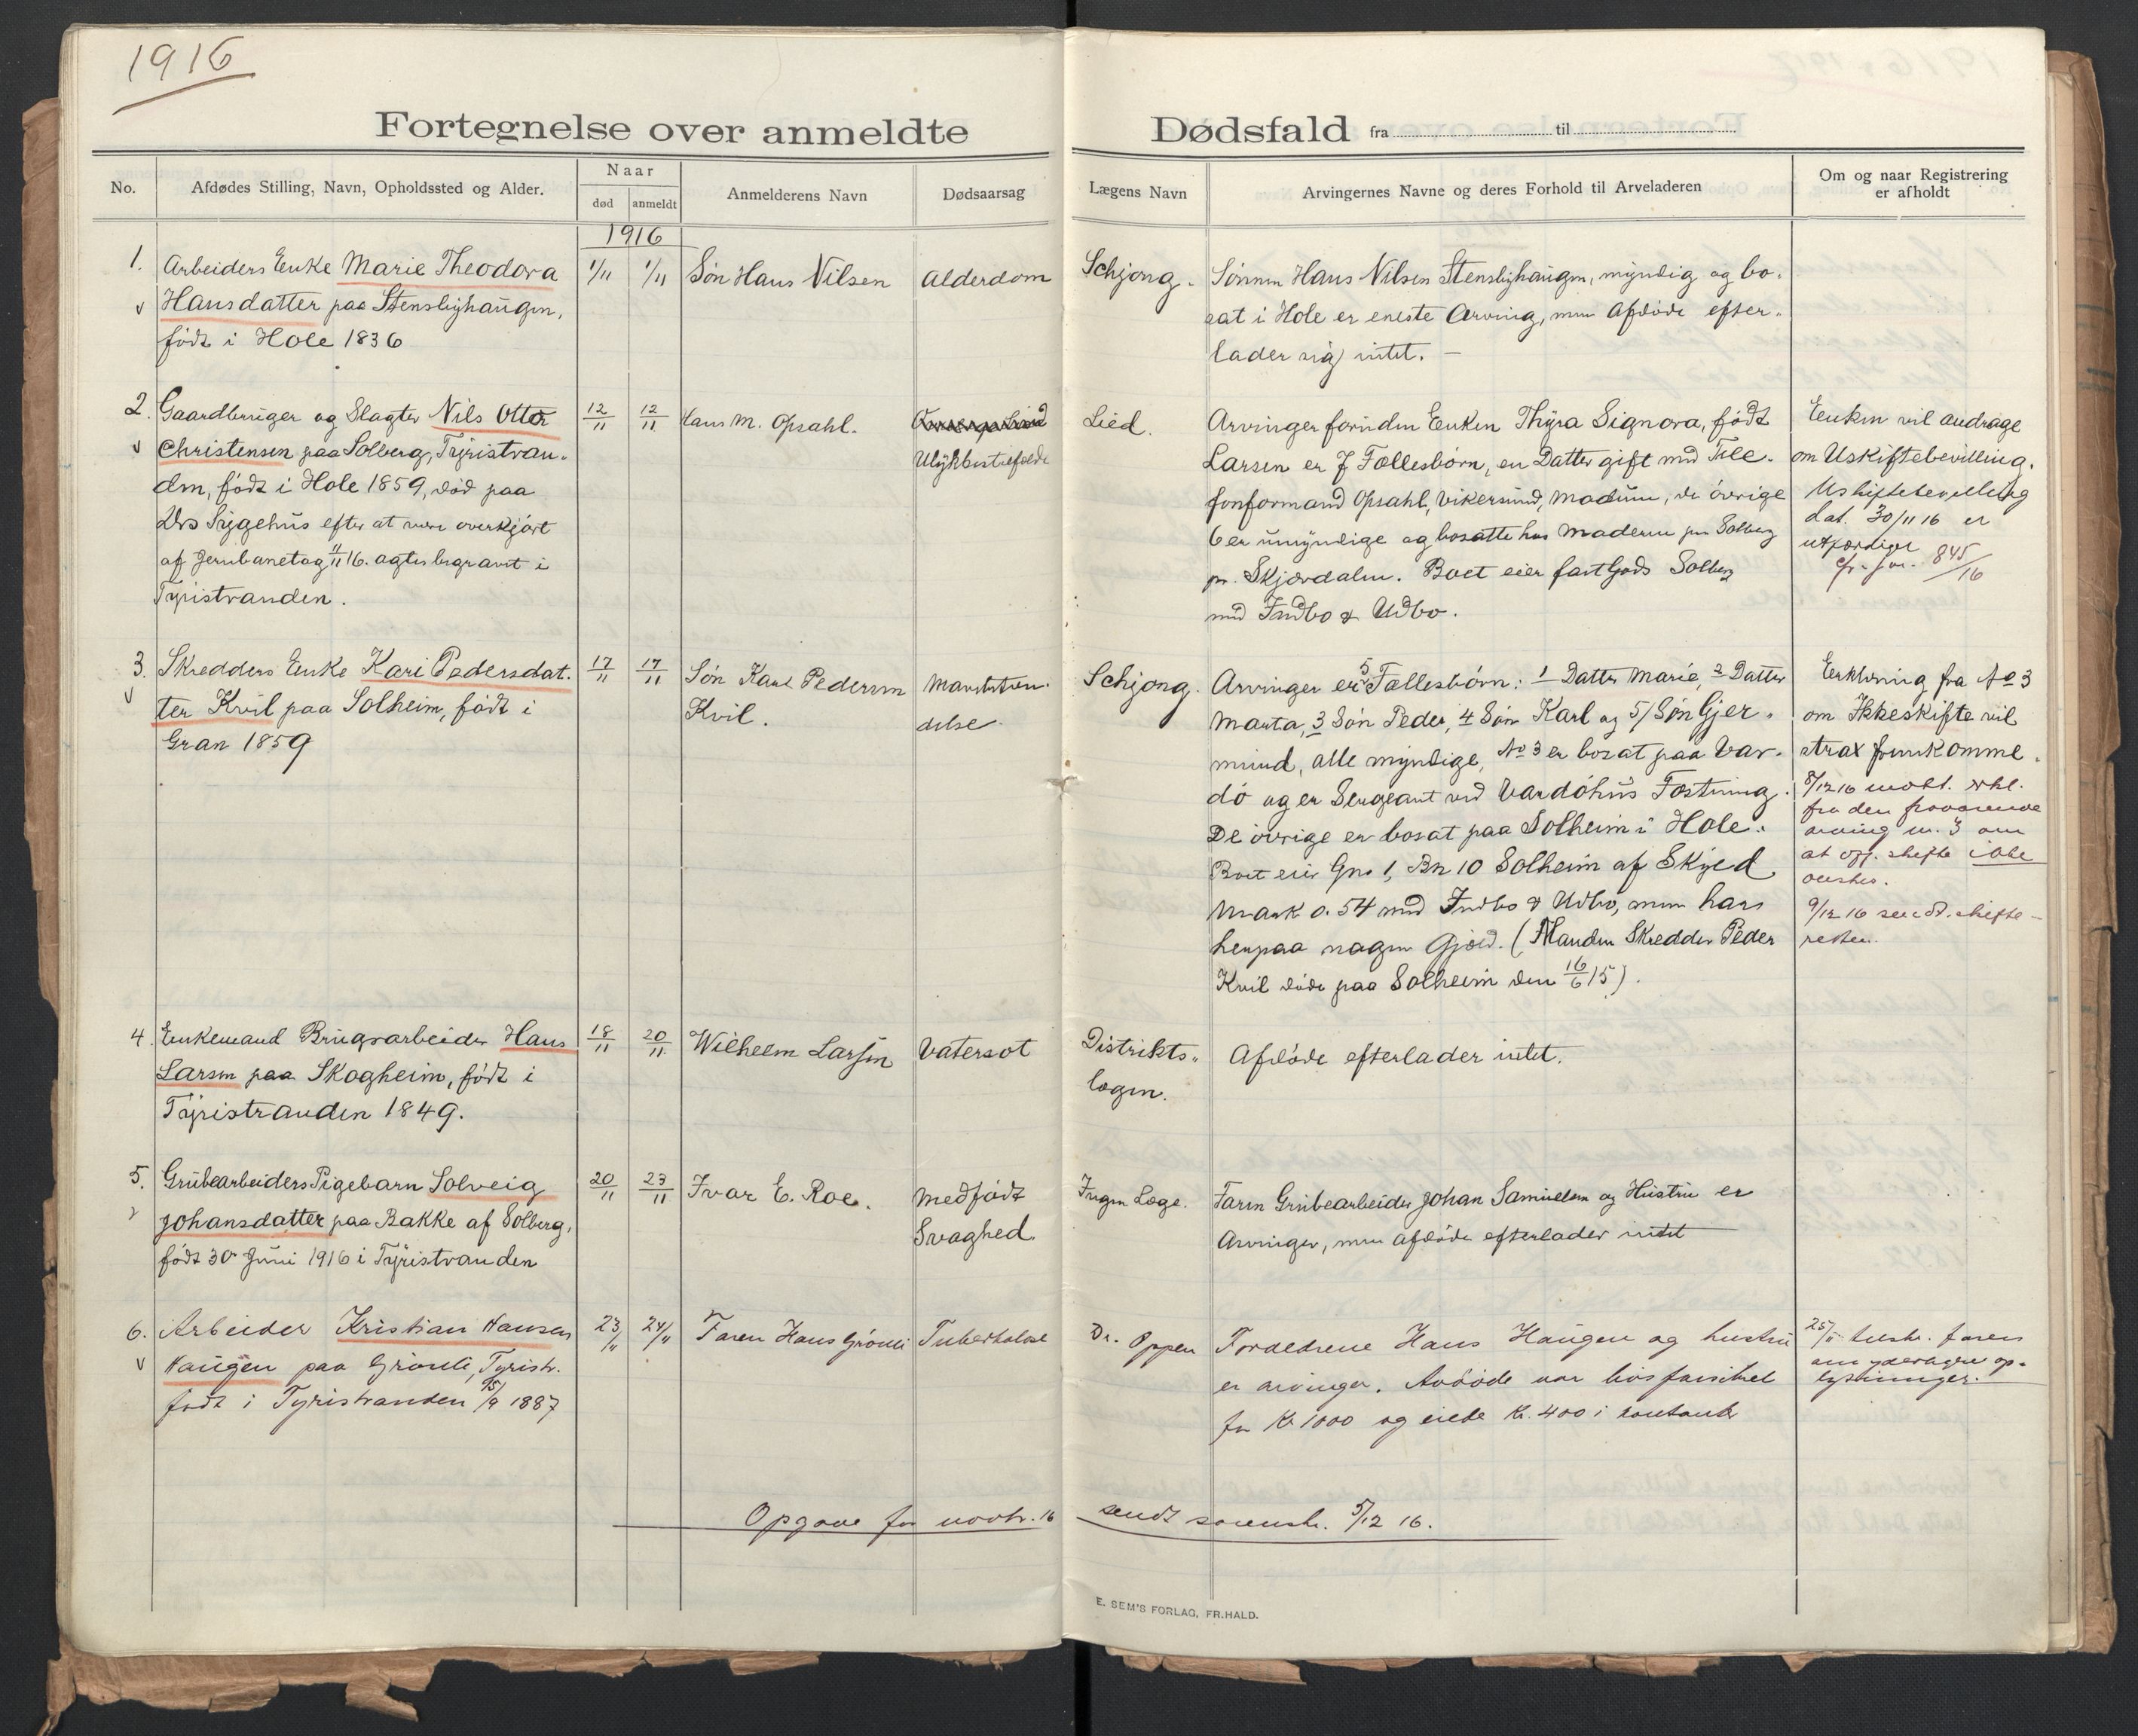 1916
Fortegnelse over anmeldte Dødsfald fra til
No.
Afdødes Stilling, Navn, Opholdssted og Alder.
Naar
død
anmeldt
Anmelderens Navn
Dødsaarsag
Lægens Navn
Arvingernes Navne og deres Forhold til Arveladeren
Om og naar Registrering
er afholdt
1916
1.
Arbeiders Enke Marie Theodora
Hansdatter paa Stenslyhaugen,
født i Hole 1836
1/11
1/11
Søn Hans Nilsen
Alderdom
Schjong.
Sønnen Hans Nilsen Stenslyhaugen, myndig og bo-
sat i Hole er eneste Arving, men Afdøde efter-
lader sig intet. —
2.
Gaardbruger og Slagter Nils Otto
Christensen paa Solberg, Tyristran-
den, født i Hole 1859, død paa
Sygehus efter at være overkjørt
af Jernbanetog 11/11 16. agtes begravet i
Tyristranden.
12/11
12/11
Hans M. Opsahl.
Ulykkestilfælde
Lied.
Arvinger foruden Enken Thyra Signora, født
Larsen er 7 Fællesbørn, en Datter gift med Tele-
fonformand Opsahl, Vikersund, Modum, de øvrige
6 er umyndige og bosatte hos Moderen paa Solberg
pr. Skjærdalen. Boet eier fast Gods Solberg
med Indbo & Udbo.
Enken vil andrage
om Uskiftebevilling.
Uskiftebevilling
dat. 30/11 16 er
utfærdiget
cfr. jor. 845/16
3.
Skredders Enke Kari Pedersdat-
ter Kvil paa Solheim, født i
Gran 1859
17/11
17/11
Søn Karl Pedersen
Kvil.
Schjong.
Arvinger er 5 Fællesbørn: 1 Datter Marie, 2 Datter
Marta, 3 Søn Peder, 4 Søn Karl og 5/ Søn Gjer-
mund, alle myndige, No 3 er bosat paa Var-
dø og er Sergeant ved Vardøhus Fæstning.
De øvrige er bosat paa Solheim i Hole.
Boet eier Gno 1, Bn 10 Solheim af Skyld
Mark 0.54 med Indbo & Udbo, men har
henpaa nogen Gjæld. (Manden Skredder Peder
Kvil døde paa Solheim den 16/6 15).
Erklæring fra No 3
om Ikkeskifte vil
strax fremkomme.
8/12 16 mott. erkl.
fra den fraværende
arving nr. 3 om
at off. skifte ikke
ønskes.
9/12 16 sendt skifte-
retten.
4.
Enkemand Brugsarbeider Hans
Larsen paa Skogheim, født i
Tyristranden 1849.
18/11
20/11
Wilhelm Larsen
Vatersot
Distrikts-
lægen.
Afdøde efterlader intet.
5.
Grubearbeiders Pigebarn Solveig
Johansdatter paa Bakke af Solberg,
født 30 Juni 1916 i Tyristranden
20/11
23/11
Ivar E. Roe.
Medfødt
Svaghed.
Ingen Læge.
Faren Grubearbeider Johan Samuelsen og Hustru er
Arvinger, men afdøde efterlader intet
6.
Arbeider Kristian Hansen
Haugen paa Grønli, Tyristr.
født i Tyristranden 15/9 1887
23/11
24/11
Faren Hans Grønli
Tuberkulose
Dr. Oppen
Forældrene Hans Haugen og hustru
er arvinger. Avdøde var livsforsikret
for Kr 1000 og eiede Kr. 400 i kontanter
25/11 tilskr. faren
om yderligere op-
lysninger.
Opgave for novbr. 16 sendt sorenskr. 5/12 16.
E. SEM'S FORLAG, FR.HALD.